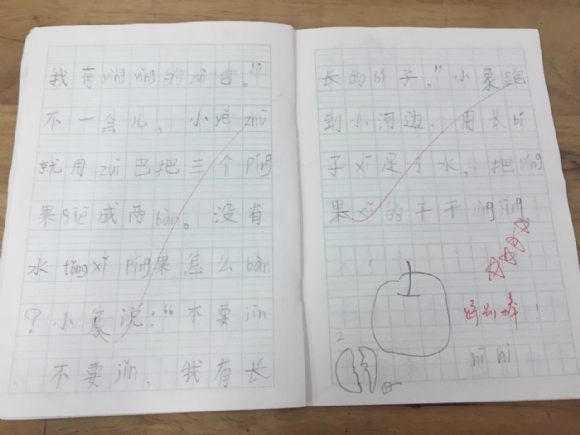 我有yìng yìng的zuǐ巴。”
不一会儿，小yě zhū
就用zuǐ巴把三个píng
果qiē成两bàn。没有
水lōng xǐ píng果怎么bàn
？小象说：“不要jǐn
不要jǐn，我有长
长的bí子。”小象跑
到小河边，用长bí
子xī足了水，把píng
果xǐ的干干jìng jìng
特别棒！
2